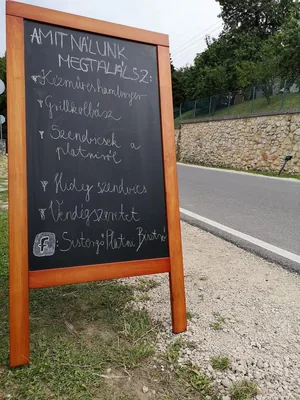 AMIT NÁLUNK
MEGTALÁLSZ:
Kézműveshamburger
Grillkolbász
Szendvicsek a
platniról
Hideg szendvics
Vendégszeretet
f : Sistergő Platni Bisztró